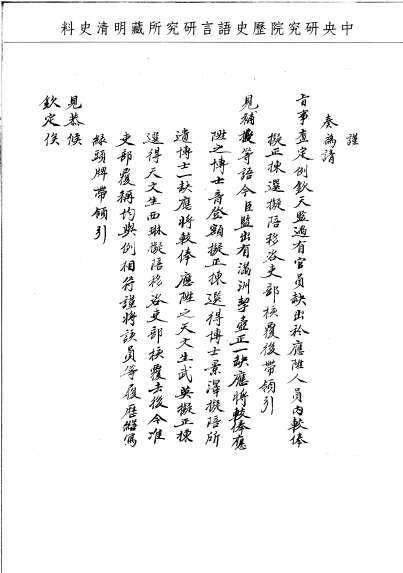 中央研究院歷史語言研究所藏明清史料
謹
奏為請
旨事查定例欽天監遇有官員缺出於應陞人員內較俸
擬正揀選擬陪移咨吏部核覆後帶領引
見補授等語今臣監出有滿洲挈壺正一缺應將較俸應
陞之博士音登額擬正揀選得博士景澤擬陪所
遺博士一缺應將較俸應陞之天文生武英擬正揀
選得天文生西琳擬陪移咨吏部核覆去後今准
吏部覆稱均與例相符謹將該員等履歷繕寫
綠頭牌帶領引
見恭候
欽定俟